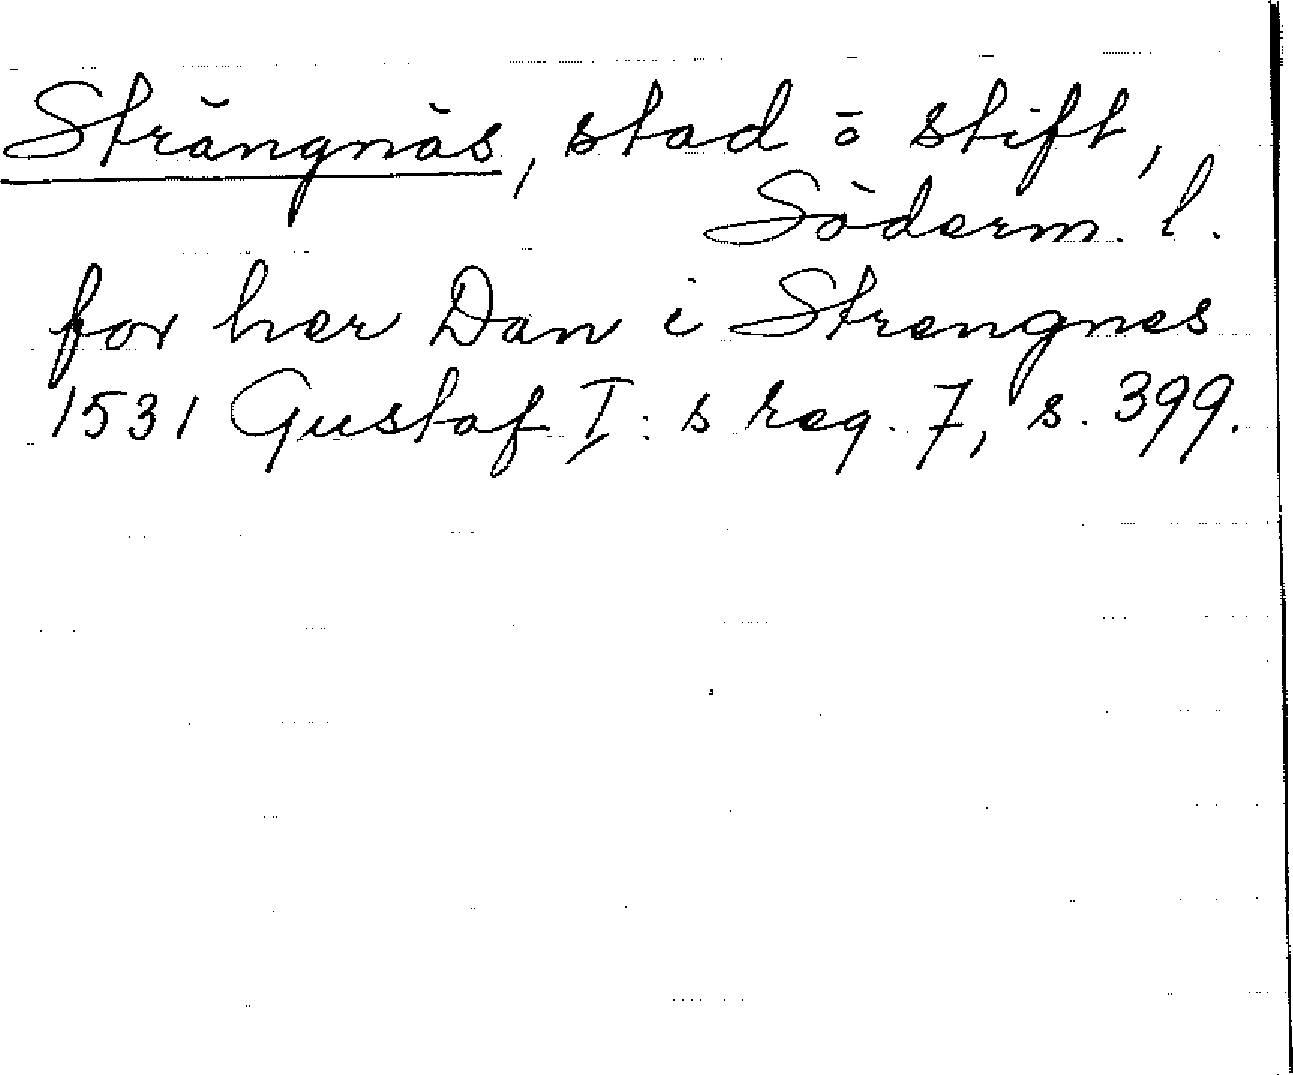 Strängnäs, stad o stift,
Söderm. l.
for her Dan i Strengnes
1531 Gustaf I:s reg. 7, s. 399.